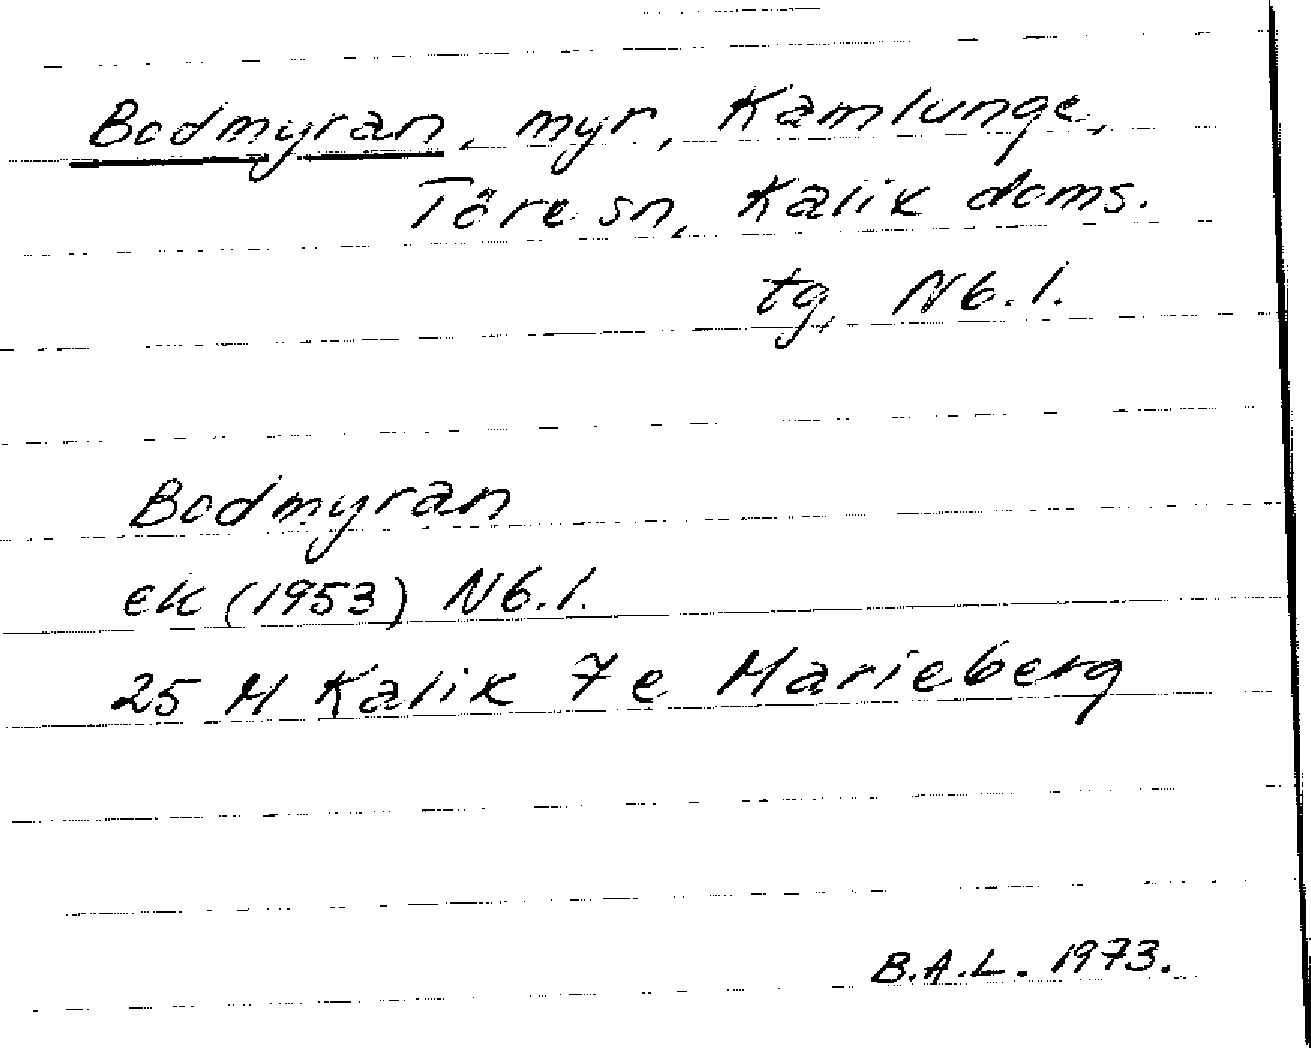 Bodmyran, myr, Kamlunge,
Töre sn, Kalix doms.
tg, Nb. l.
Bodmyran
ek (1953) Nb. l.
25 M Kalix 7e Marieberg
B.A.L. 1973.